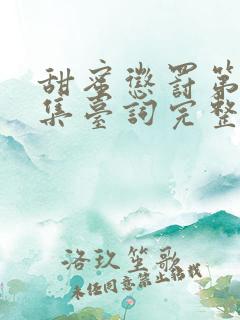 甜蜜懲罰第
集臺詞完整
洛玖笙歌
未经同意禁止转载